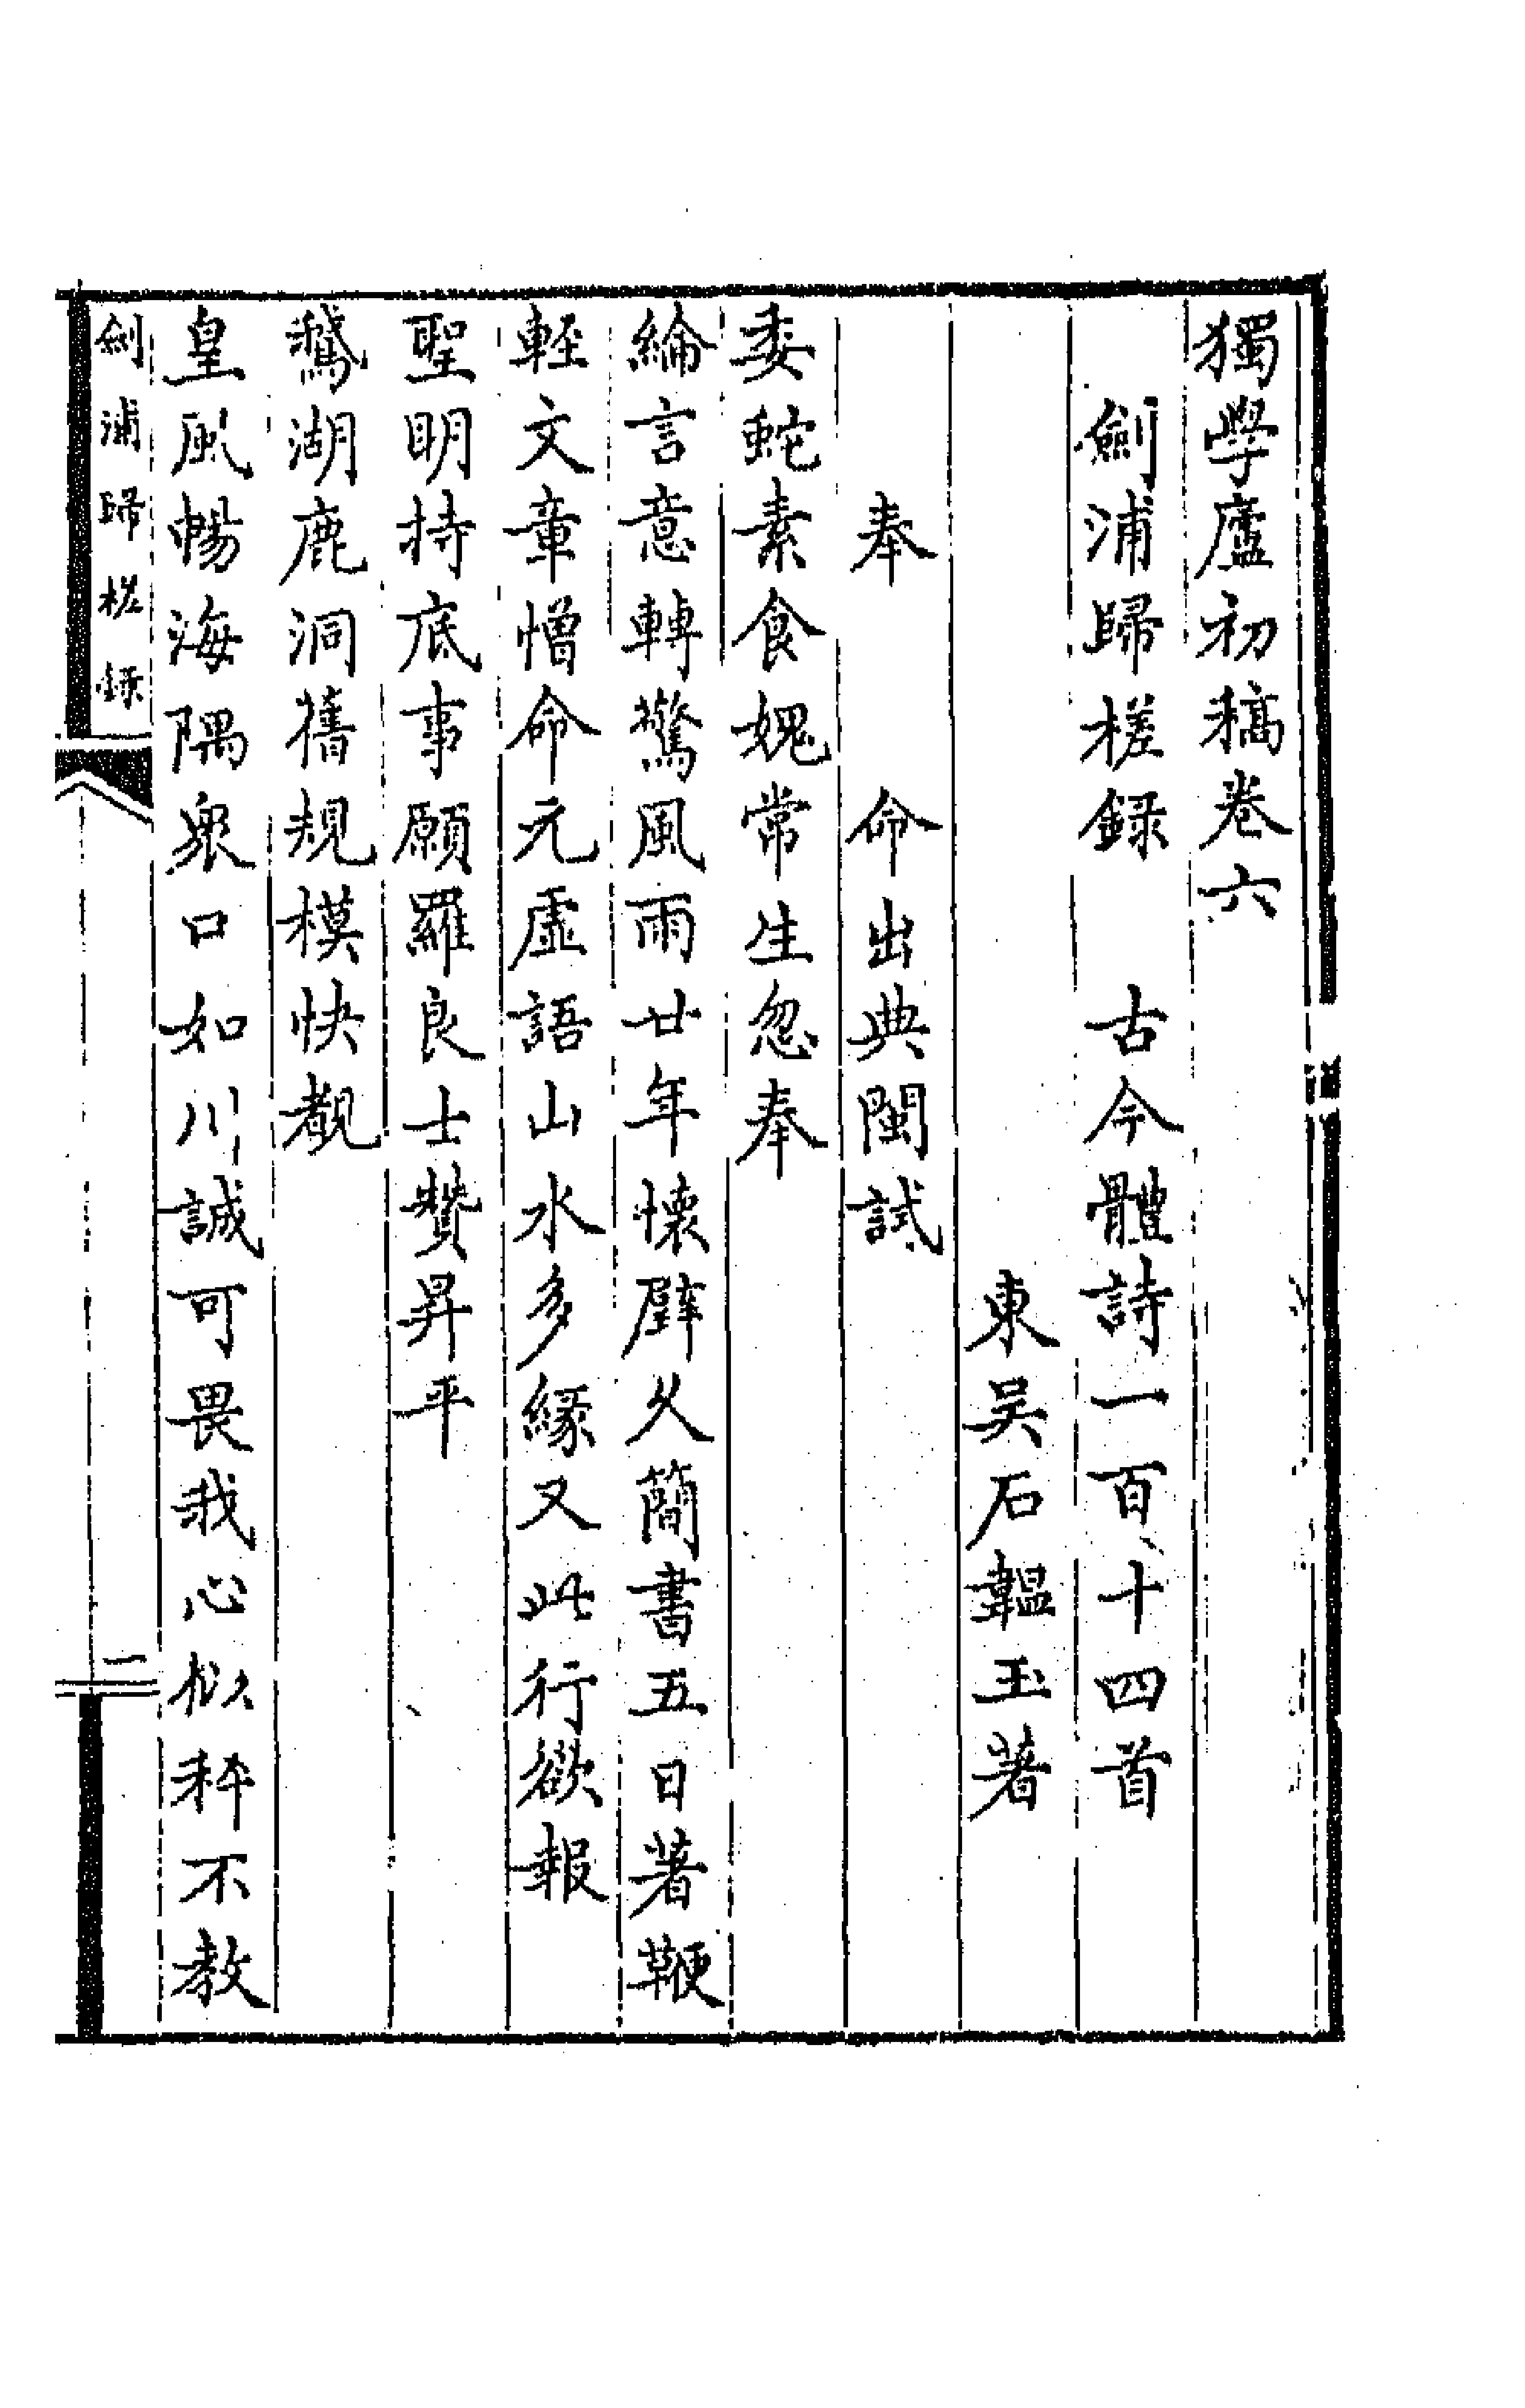 獨學廬初稿卷六
劍浦歸槎錄　古今體詩一百十四首
東吳石韞玉著
奉　命出典閩試
委蛇素食媿常生忽奉
綸言意轉驚風雨廿年懷璧久簡書五日著鞭
輕文章憎命元虛語山水多緣又此行欲報
聖明持底事願羅良士贊昇平
鵞湖鹿洞舊規模快覩
皇風暢海隅衆口如川誠可畏我心似秤不教
劍浦歸槎錄
一